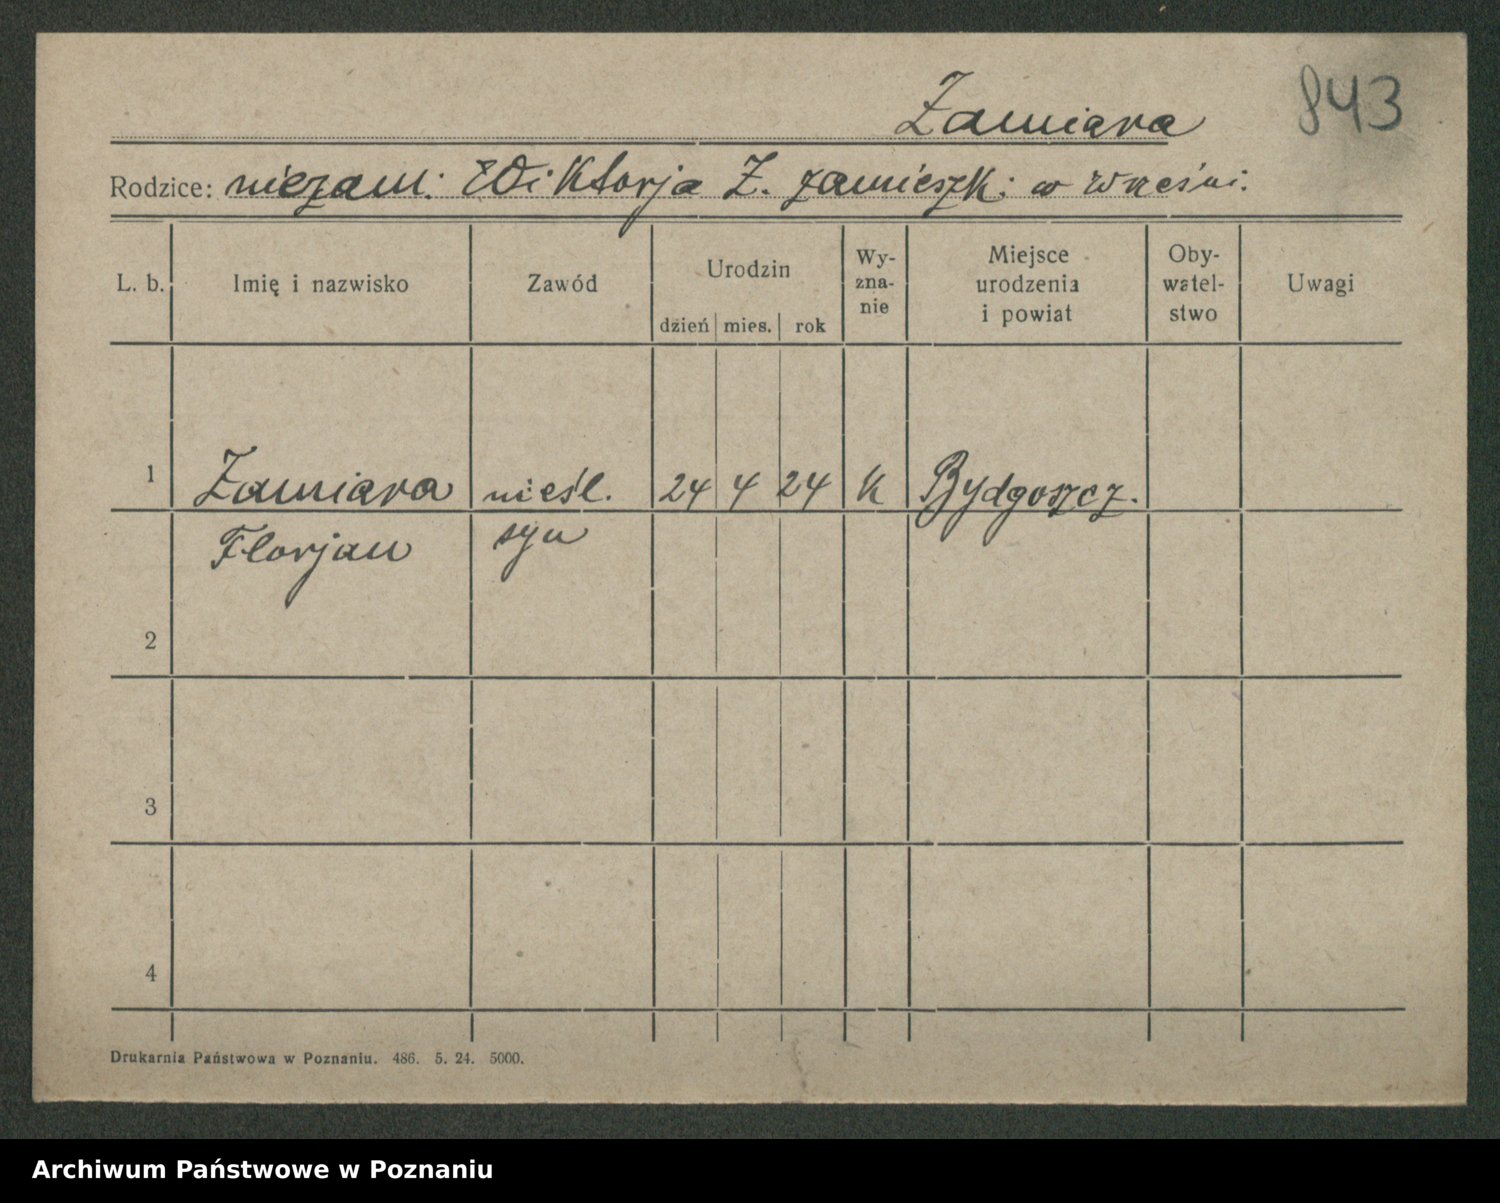 Zamiara 843
Rodzice: niezam. Wiktorja Z. zamieszk. w Wrześni.
L. b. Imię i nazwisko Zawód Urodzin Wy-zna-nie Miejsce urodzenia i powiat Oby-watel-stwo Uwagi
dzień mies. rok
1 Zamiara nieśl. 24 4 24 K Bydgoszcz.
Florjan syn
2
3
4
Drukarnia Państwowa w Poznaniu. 486. 5. 24. 5000.
Archiwum Państwowe w Poznaniu